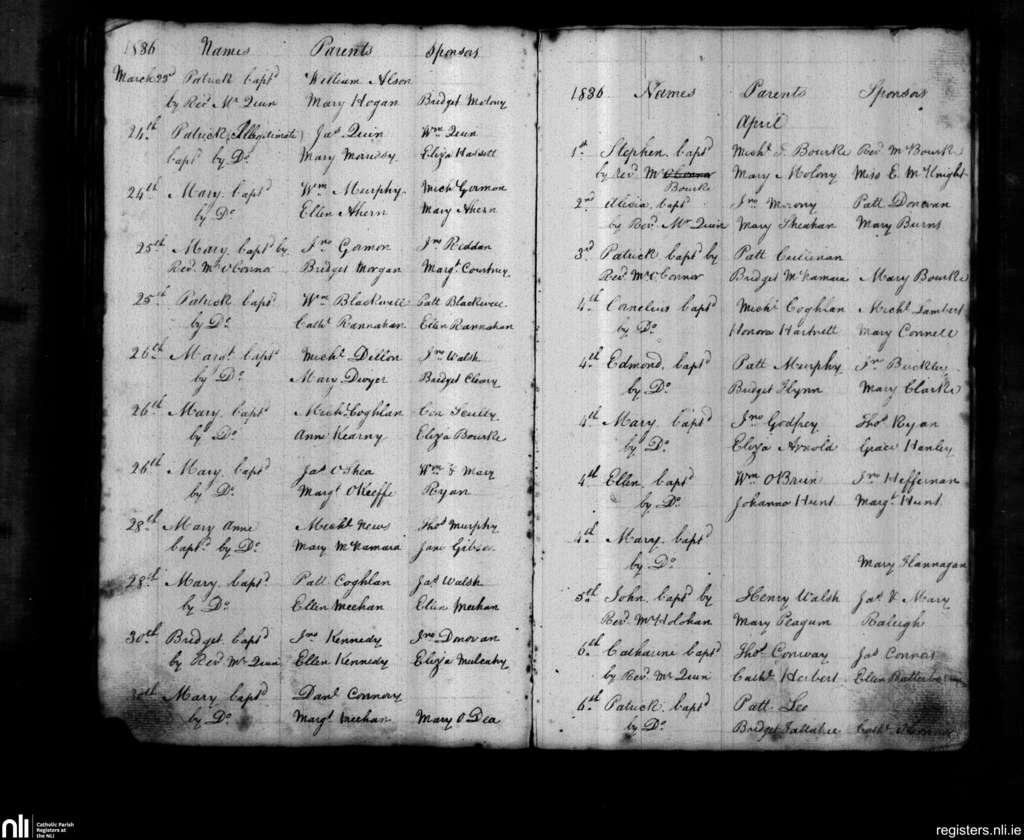 1836 Names Parents Sponsors
March 23d Patrick bapd William Alson
by Revd Mr Quin Mary Hogan Bridget Molony
24th Patrick, Illegitimate Jas Quin Wm Quin
bapd by Do Mary Morrissy Eliza Hassett
24th Mary bapd Wm Murphy Michl Gorman
by Do Ellen Ahern Mary Ahern
25th Mary bapd by Jno Gorman Jno Riddan
Revd Mr O'Connor Bridget Morgan Margt Courtney
25th Patrick bapd Wm Blackwell Patt Blackwell
by Do Cathe Rannahan Ellen Rannahan
26th Margt bapd Michl Dillon Jno Walsh
by Do Mary Dwyer Bridget Cleary
26th Mary bapd Michl Coghlan Con
by Do Anne Kearny Eliza Bourke
26th Mary bapd Jas O'Shea Wm & Mary
by Do Margt O'Keeffe Ryan
28th Mary Anne Michl News Thos Murphy
bapd by Do Mary McNamara Jane
28th Mary bapd Patt Coghlan Jas Walsh
by Do Ellen Meehan Ellen Meehan
30th Bridget bapd Jno Kennedy Jno Donovan
by Revd Mr Quin Ellen Kennedy Eliza Mulcahy
30th Mary bapd Danl Connory
by Do Margt Meehan Mary O'Dea
1836 Names Parents Sponsors
April
1st Stephen bapd Michl S Bourke Revd Mr Bourke
by Revd Mr O'Connor Mary Molony Miss E. McKnight
Bourke
2nd Alicia bapd Jno Morony Patt Donovan
by Revd Mr Quin Mary Sheahan Mary Burns
3d Patrick bapd by Patt Cullinan
Revd Mr O'Connor Bridget McNamara Mary Bourke
4th Cornelius bapd Michl Coghlan Michl Lambert
by Do Honora Hartnett Mary Connell
4th Edmond bapd Patt Murphy Jno Buckley
by Do Bridget Flynn Mary Clarke
4th Mary bapd Jno Godfrey Thos Ryan
by Do Eliza Arnold Grace Hanley
4th Ellen bapd Wm O'Brien Jno Heffernan
by Do Johanna Hunt Margt Hunt
4th Mary bapd
by Do Mary Flannagan
5th John bapd by Henry Walsh Jas & Mary
Revd Mr Holohan Mary Peagum Raleigh
6th Catharine bapd Thos Conway Jas Connors
by Revd Mr Quin Cathe Herbert Ellen
6th Patrick bapd Patt Lee
by Do Bridget Cathe
nli Catholic Parish
Registers at
the NLI
registers.nli.ie